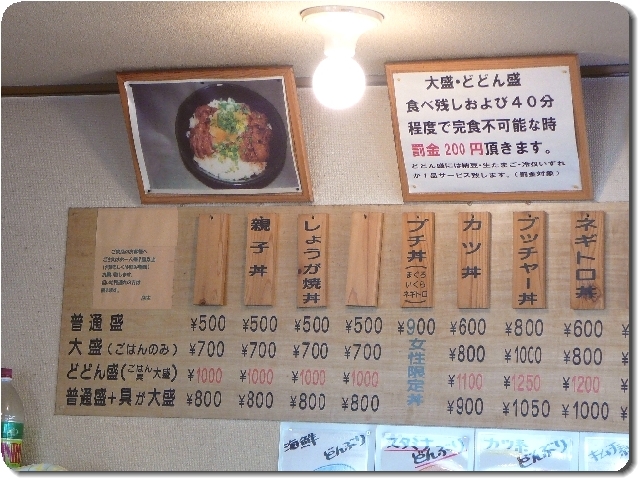 大盛・どどん盛
食べ残しおよび40分
程度で完食不可能な時
罰金200円頂きます。
どどん盛には納豆・生たまご・冷奴いずれ
か1品サービス致します。(罰金対象)
親子丼
しょうが焼丼
プチ丼(まぐろ いくら ネギトロ)
カツ丼
ブッチャー丼
ネギトロ丼
普通盛 ¥500 ¥500 ¥500 ¥500 ¥900 ¥600 ¥800 ¥600
大盛(ごはんのみ) ¥700 ¥700 ¥700 ¥700 ¥800 ¥1000 ¥800
どどん盛(ごはん 具 大盛) ¥1000 ¥1000 ¥1000 ¥1000 ¥1100 ¥1250 ¥1200
普通盛+具が大盛 ¥800 ¥800 ¥800 ¥800 ¥900 ¥1050 ¥1000
女性限定丼
海鮮どんぶり
スタミナどんぶり
カツ系どんぶり